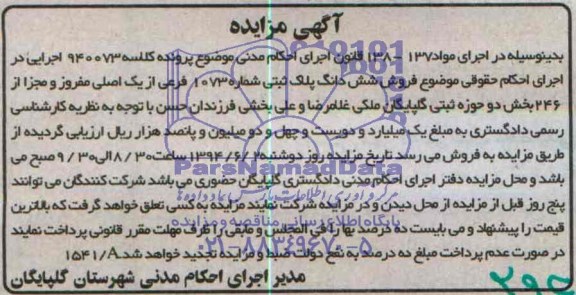 آگهی مزایده
بدینوسیله در اجرای مواد ۱۳۷ - ۱۳۸ قانون اجرای احکام مدنی موضوع پرونده کلاسه ۹۴۰۰۷۳ اجرایی در
اجرای احکام حقوقی موضوع فروش شش دانگ پلاک ثبتی شماره ۱۰۷۳ فرعی از یک اصلی مفروز و مجزا از
۲۴۶ بخش دو حوزه ثبتی گلپایگان ملکی غلامرضا و علی بخشی فرزندان حسن با توجه به نظریه کارشناسی
رسمی دادگستری به مبلغ یک میلیارد و دویست و چهل و دو میلیون و پانصد هزار ریال ارزیابی گردیده از
طریق مزایده به فروش می رسد تاریخ مزایده روز دوشنبه ۱۳۹۴/۶/۲ ساعت ۸/۳۰ الی ۹/۳۰ صبح می
باشد و محل مزایده دفتر اجرای احکام مدنی دادگستری گلپایگان حضوری می باشد شرکت کنندگان می توانند
پنج روز قبل از مزایده از محل دیدن و در مزایده شرکت نمایند مزایده به کسی تعلق خواهد گرفت که بالاترین
قیمت را پیشنهاد و می بایست ده درصد بها را فی المجلس و مابقی را ظرف مهلت مقرر قانونی پرداخت نمایند
در صورت عدم پرداخت مبلغ ده درصد به نفع دولت ضبط و مزایده تجدید خواهد شد. ۱۵۴۱/A
مدیر اجرای احکام مدنی شهرستان گلپایگان
ParsNamadData
پایگاه اطلاع رسانی مناقصه و مزایده
۰۲۱-۸۸۳۴۹۶۷۰-۵